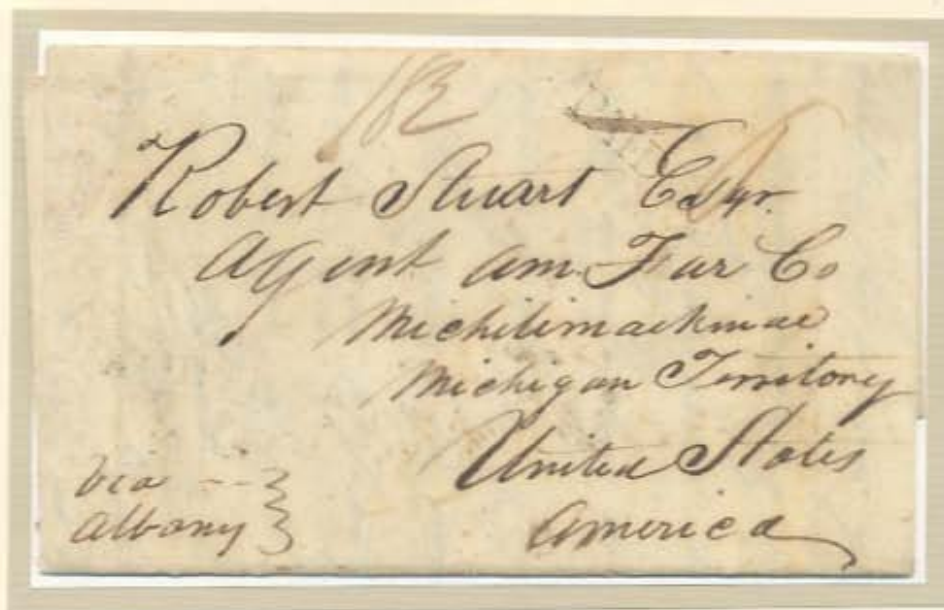 Robert Stuart Esqr.
Agent Am. Fur Co
Michilimackinac
Michigan Territory
United States
America
via
Albany